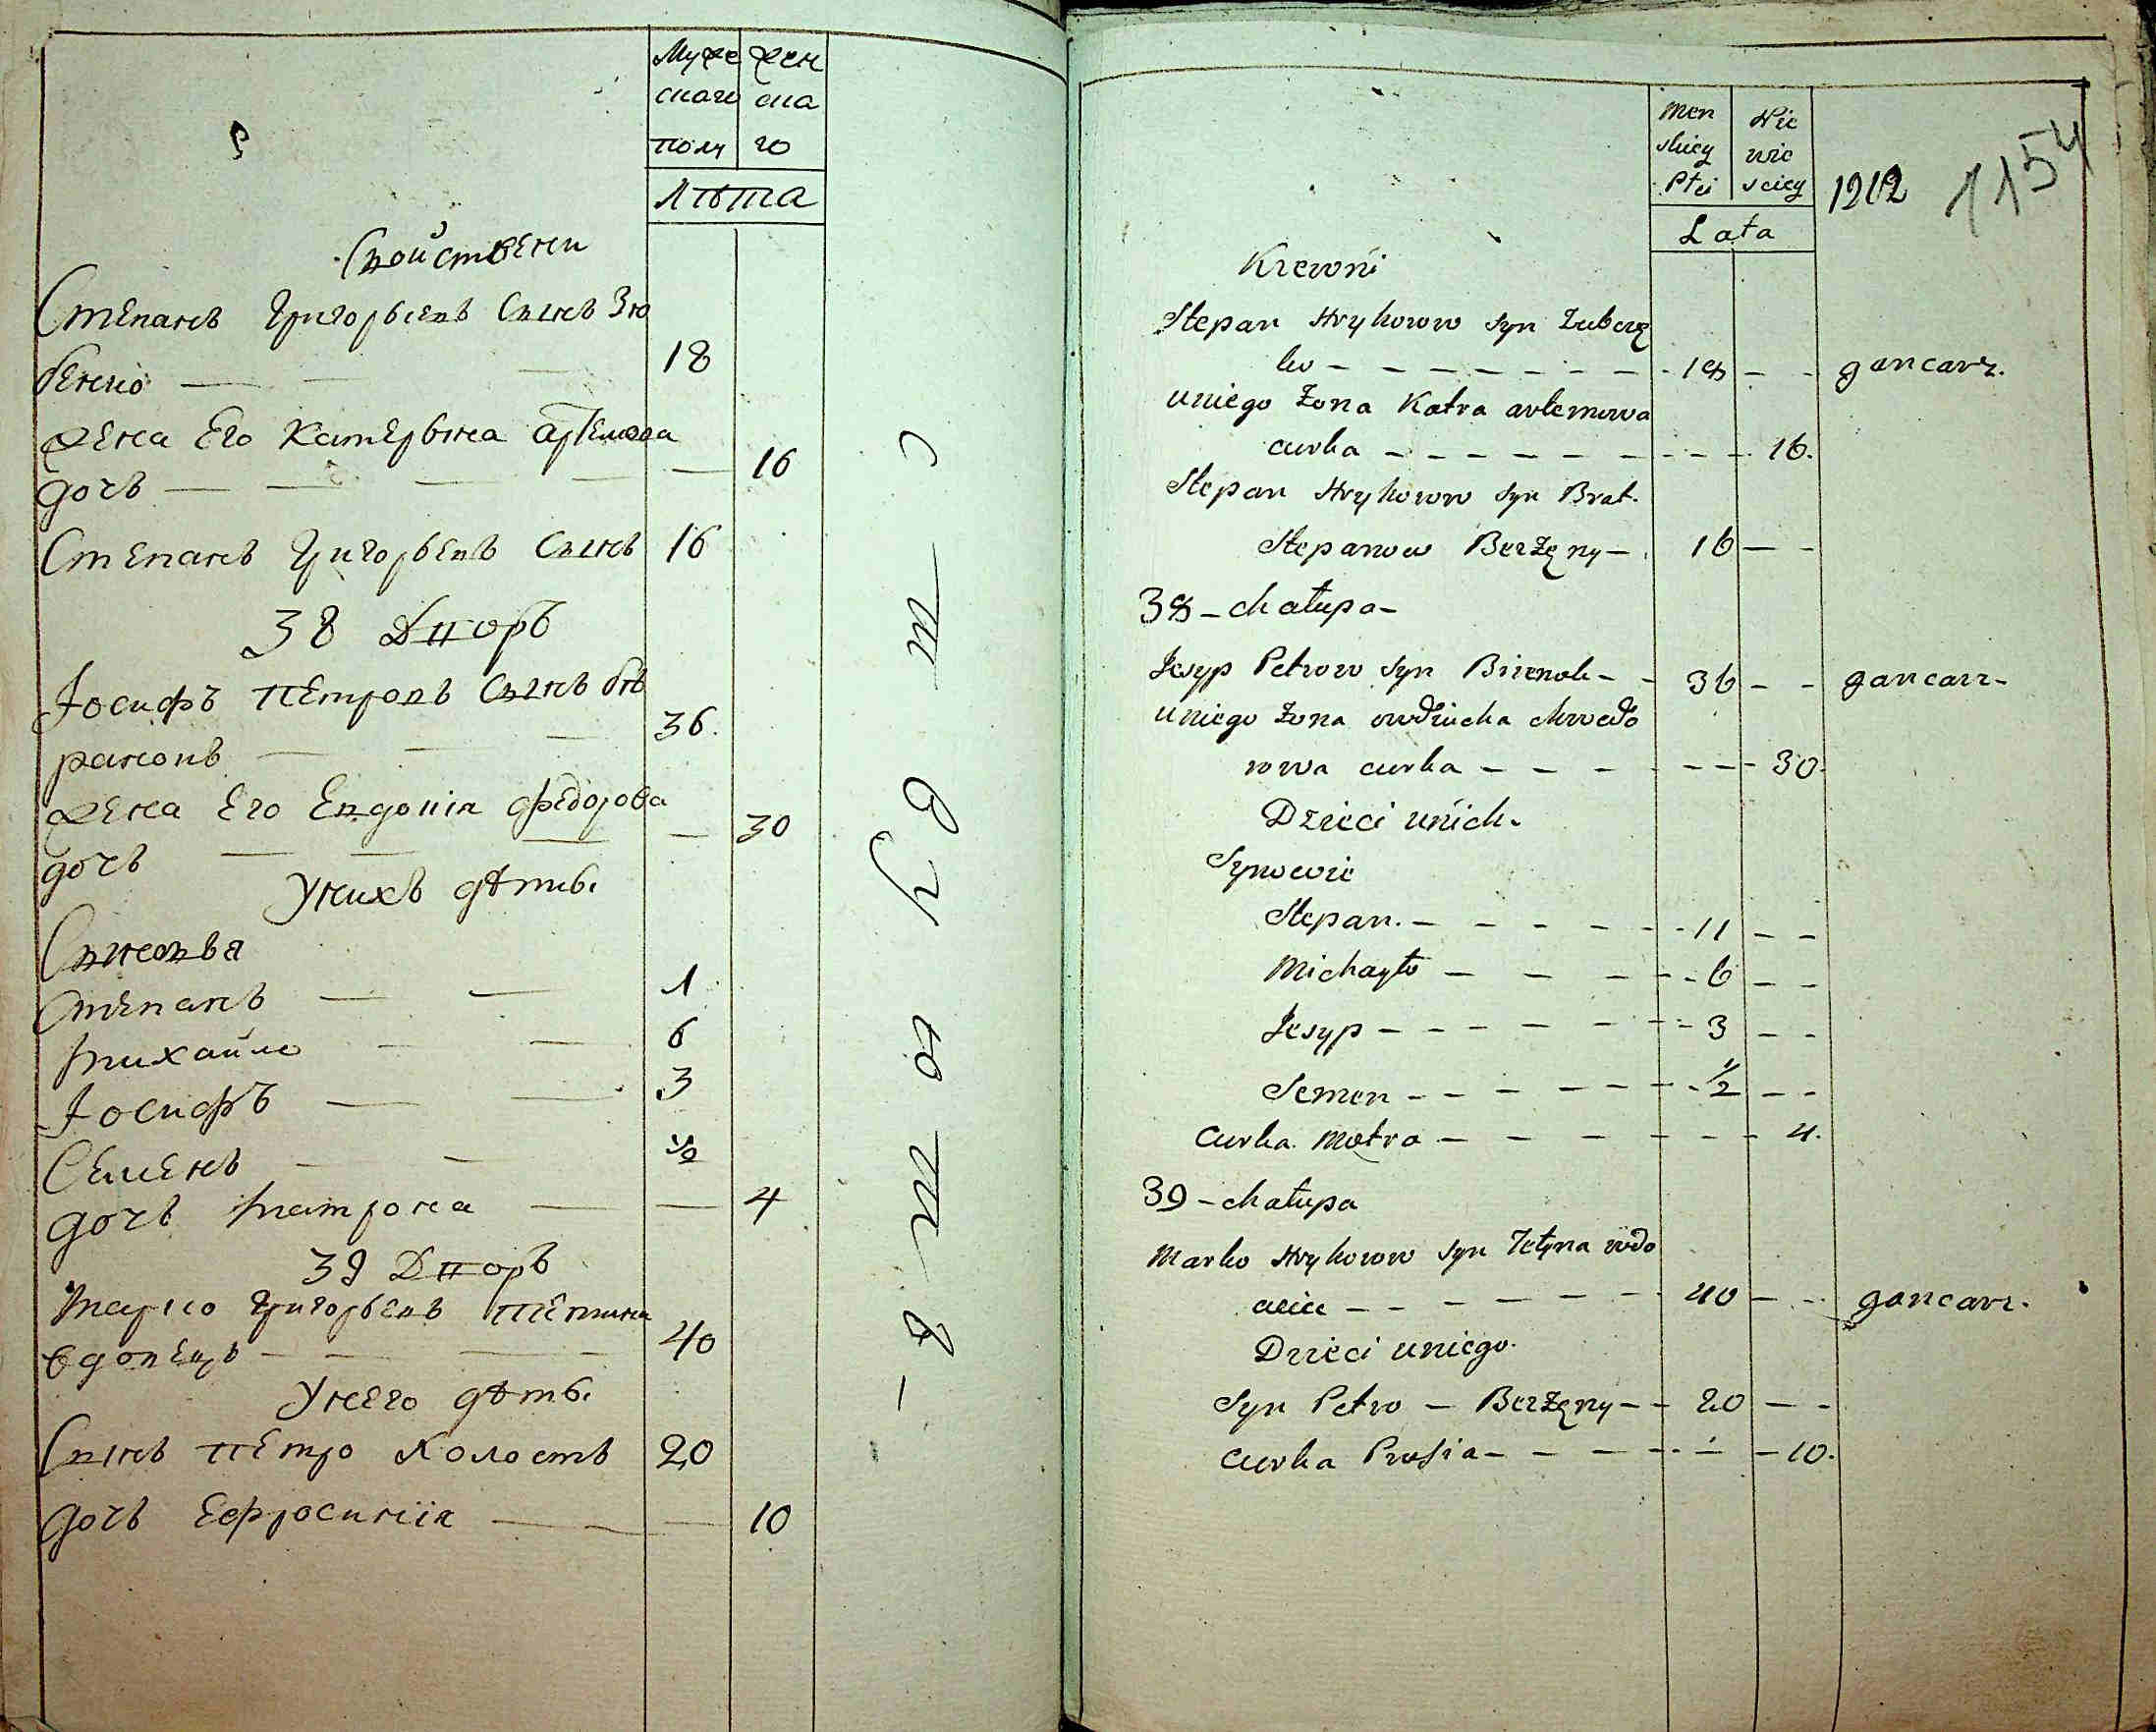 Муже жен
скаго ска
полу го
Лѣта
Свойствени
Степанъ Григорьевъ Сынъ Зю
бенко — 18
жена Его Катерына Артемова
дочь — 16
Степанъ Григорьевъ Сынъ 16
38 Дворъ
Іосифъ Петровъ Сынъ
36.
жена Его Евдокія Федорова
дочь — 30
Унихъ дѣти.
Сыновья
Степанъ — 1
Михайло — 6
Іосифъ — 3
Семенъ — ½
дочь Матрона — 4
39 Дворъ
Марко Григорьевъ
вдовецъ — 40
Унего дѣти.
Сынъ Петро Холостъ 20
дочь Ефросинія — 10
Men Nie
skiey wie
Płci sciey
Lata
1212 1154
Krewni
Stepan Hryhorow syn Zubczę
ko — 18 — gancarz.
uniego Zona Katra artemowa
curka — 16.
Stepan Hryhorow syn Brat.
Stepanow BezZęny — 16 —
38 – chałupa –
Jesyp Petrow syn — 36 — gancarz –
uniego Zona owdziucha chwedo
rowa curka — 30.
Dzieci unich.
Synowie
Stepan. — 11 —
Michayło — 6 —
Jesyp — 3 —
Semen — ½ —
Curka Motra — 4.
39 – chałupa
Marko Hryhorow syn wdo
wiec — 40 — gancarz.
Dzieci uniego.
Syn Petro — BezZęny — 20 —
Curka Prosia — 10.